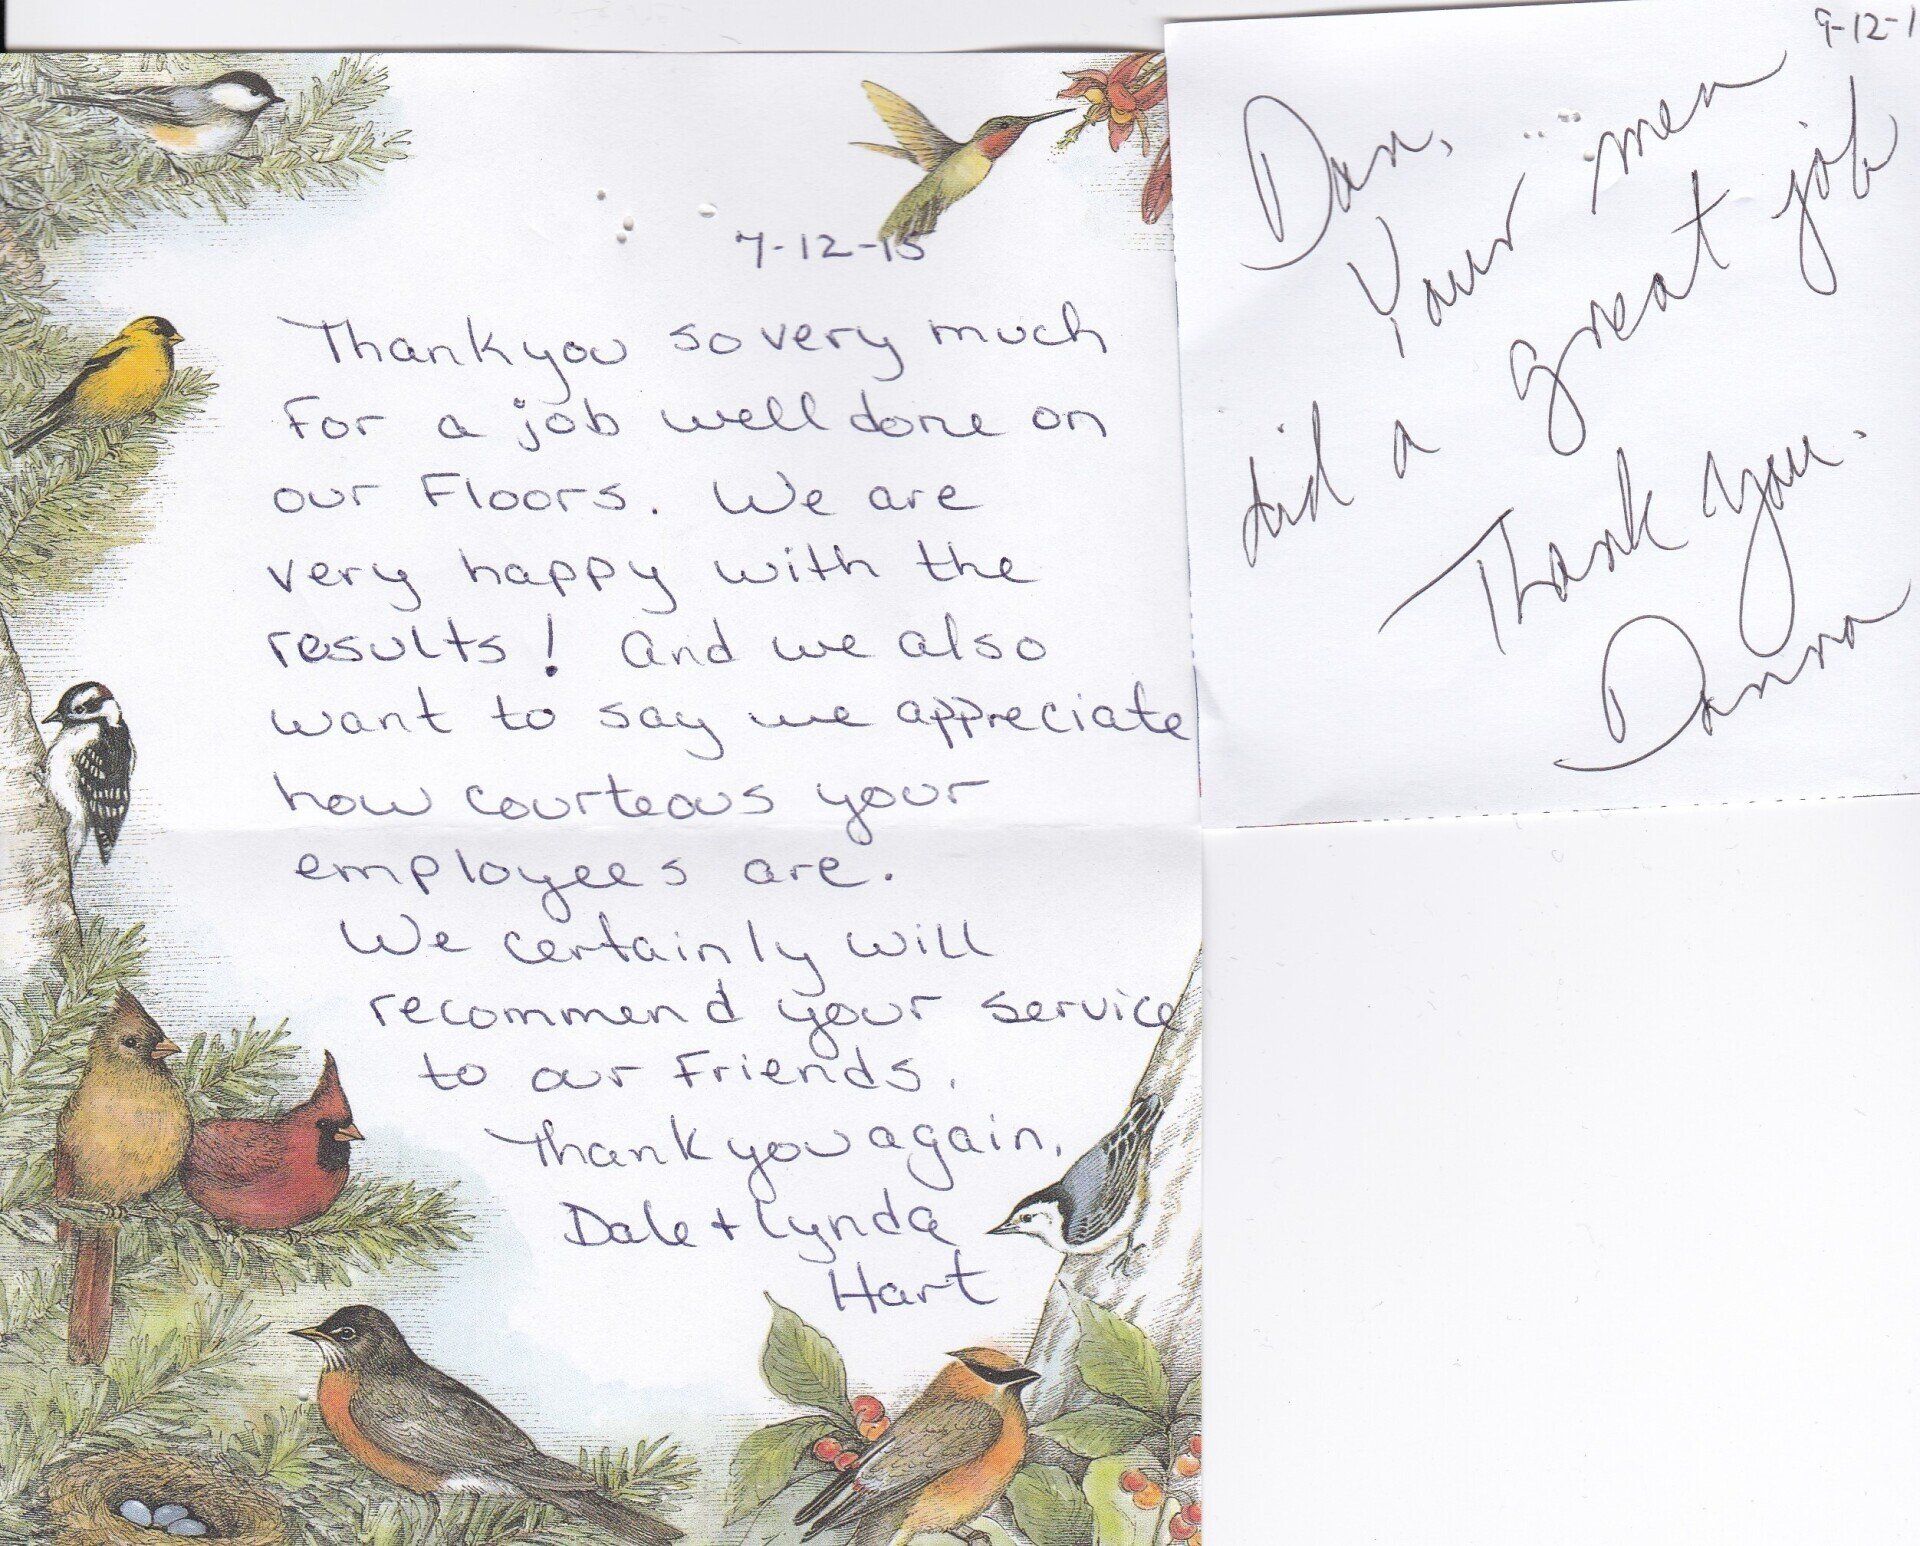 7-12-15
Thank you so very much
For a job well done on
our Floors. We are
very happy with the
results! And we also
want to say we appreciate
how courteous your
employees are.
We certainly will
recommend your service
to our Friends.
Thank you again,
Dale + Lynda
Hart
9-12-1
Dan,
Your men
did a great job
Thank you.
Danna